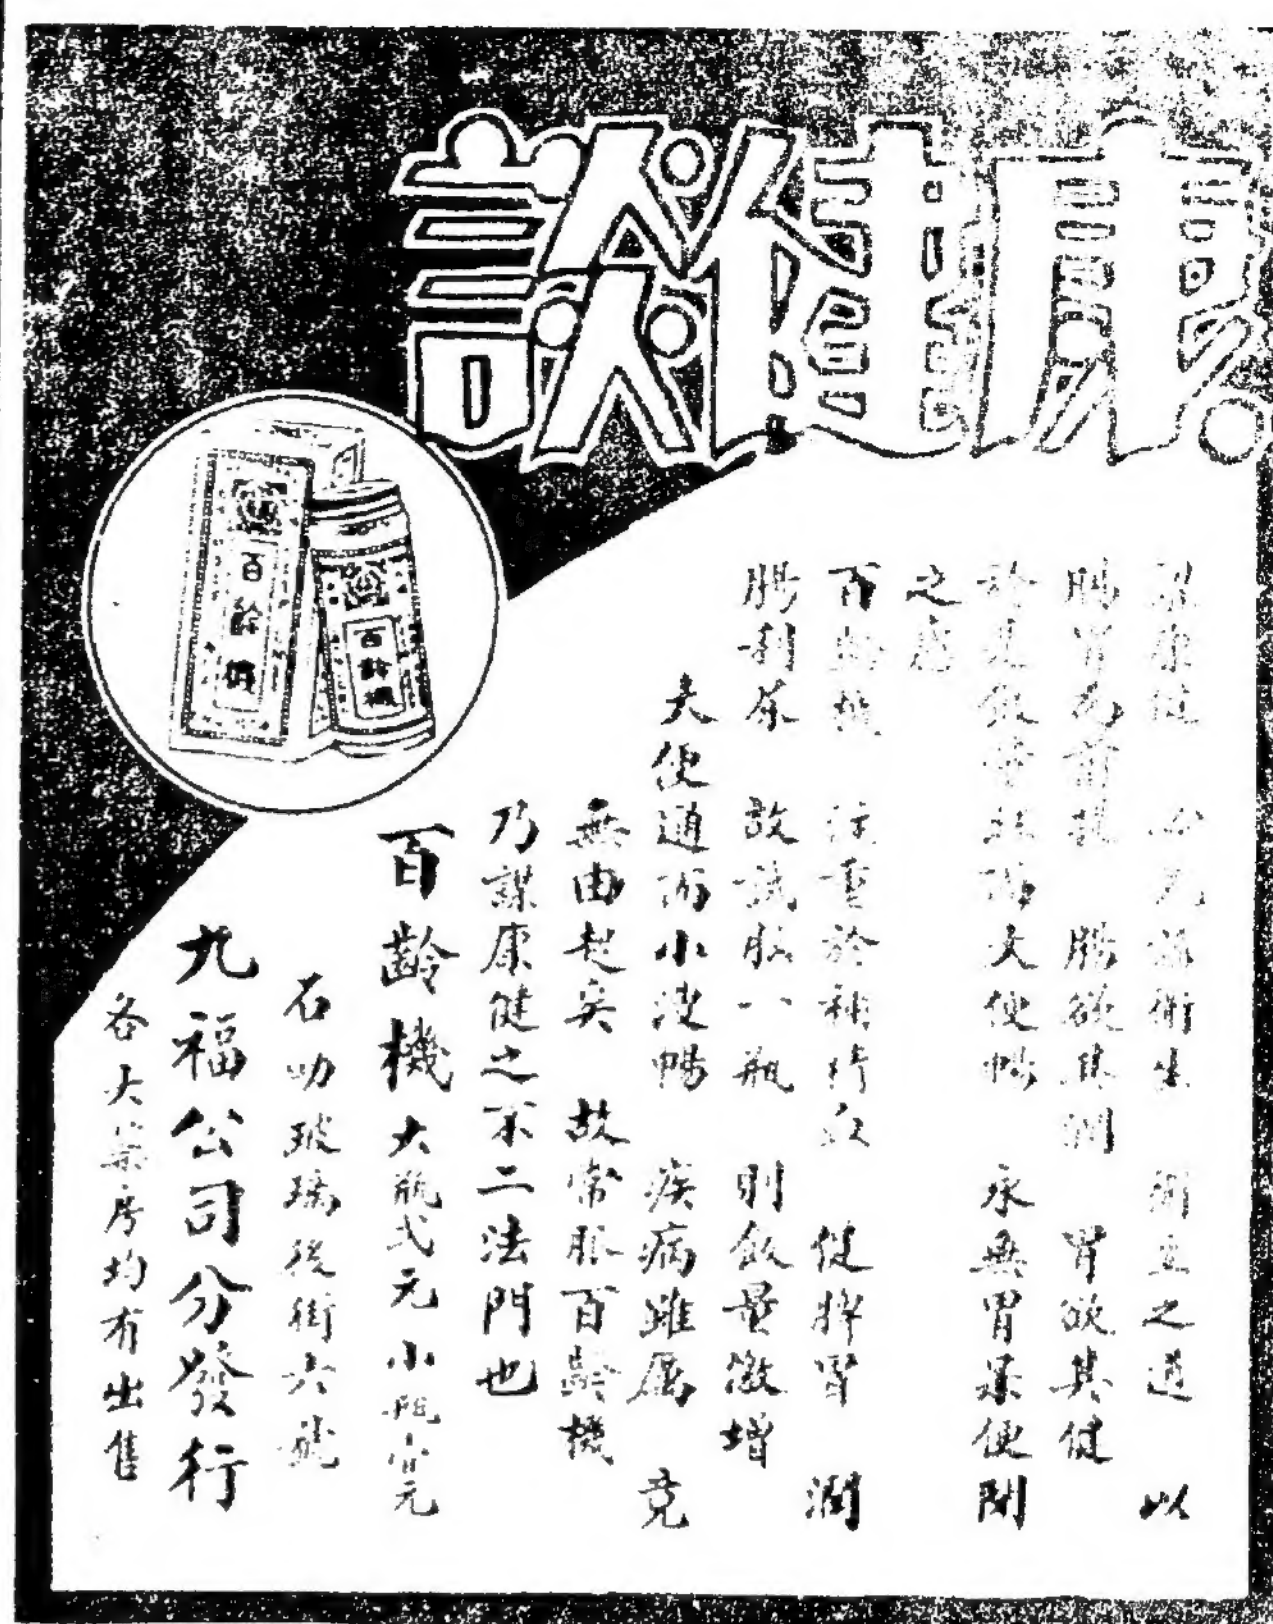 康健談
康健 必先講衛生 衛生之道 以
腸胃為前提 腸欲其潤 胃欲其健
於是飯量旺而大便暢 永無胃呆便閉
之
百齡機 注重於補精血 健脾胃 潤
腸利尿 故試服一瓶 則飯量激增
大便通而小溲暢 疾病雖厲 竟
無由起矣 故常服百齡機
乃謀康健之不二法門也
百齡機 大瓶弍元 小瓶壹元
石叻玻璃後街六號
九福公司分發行
各大藥房均有出售
百齡機
百齡機